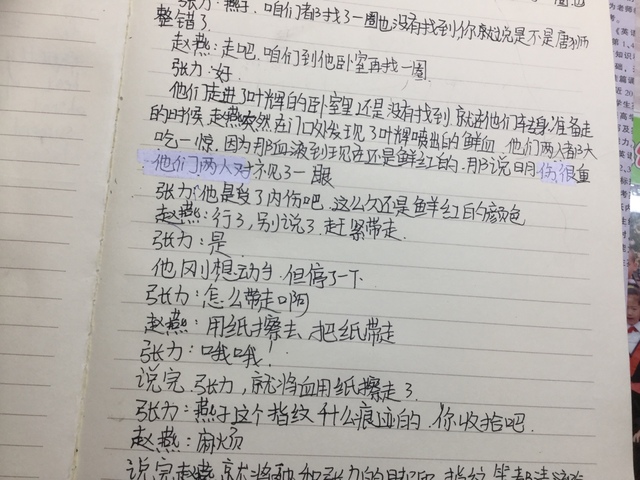 张力:燕子,咱们者都找了一圈也没有找到你就说是不是唐狮
整错了
赵燕:走吧,咱们到他卧室再找一圈.
张力:好.
他们走进了叶辉的卧室里还是没有找到.就在他们转身准备走
的时候,赵燕突然在门口处发现了叶辉喷出的鲜血.他们两人者都大
吃一惊.因为那血液到现在还是鲜红的.那说明伤很重
他们两人对视了一眼
张力:他是受了内伤吧.这么久还是鲜红的颜色
赵燕:行了,别说了.赶紧带走.
张力:是
他刚想动身.但停了一下
张力:怎么带走啊
赵燕:用纸擦去.把纸带走
张力:哦哦!
说完.张力,就将血用纸擦走了.
张力:燕子这个指纹什么痕迹的.你收拾吧.
赵燕:麻烦
说完赵燕就将她和张力的脚印,指纹